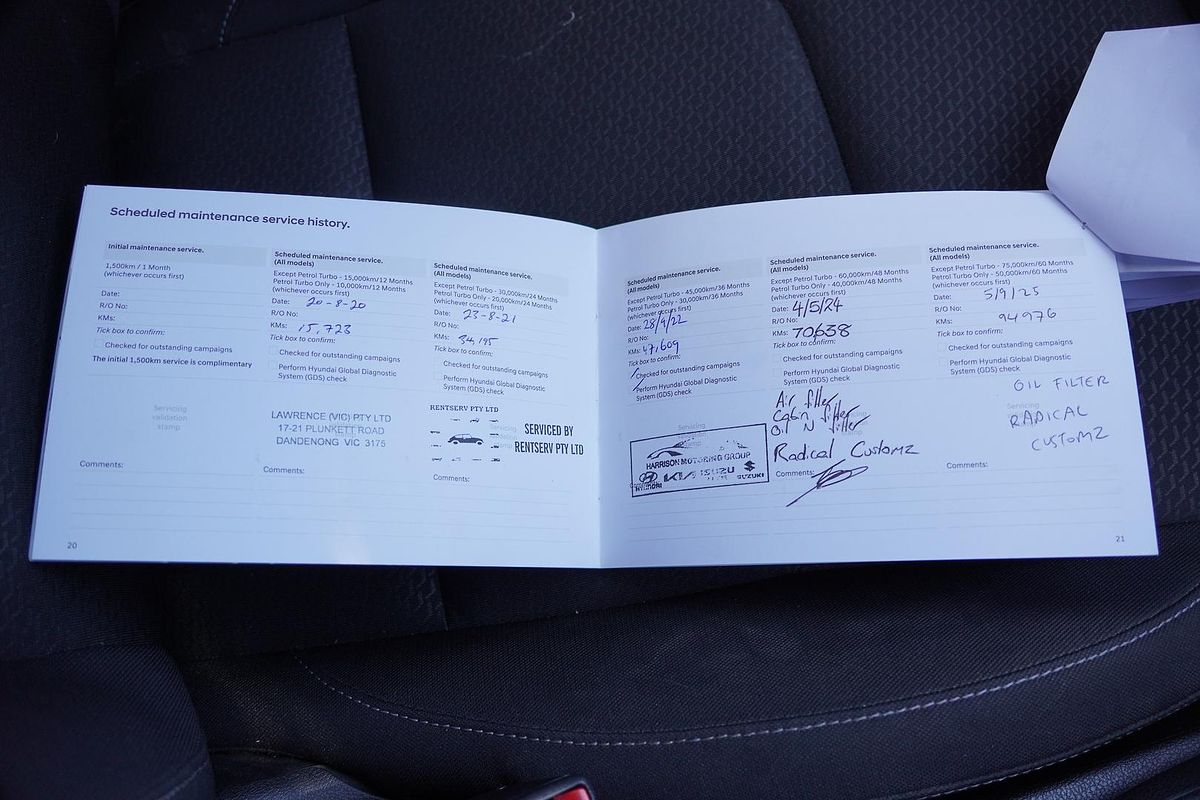 Scheduled maintenance service history.
Initial maintenance service.
1,500km / 1 Month
(whichever occurs first)
Date:
R/O No:
KMs:
Tick box to confirm:
Checked for outstanding campaigns
The initial 1,500km service is complimentary
Servicing
validation
stamp
Comments:
20
Scheduled maintenance service.
(All models)
Except Petrol Turbo - 15,000km/12 Months
Petrol Turbo Only - 10,000km/12 Months
(whichever occurs first)
Date: 20-8-20
R/O No:
KMs: 15,723
Tick box to confirm:
Checked for outstanding campaigns
Perform Hyundai Global Diagnostic
System (GDS) check
LAWRENCE (VIC) PTY LTD
17-21 PLUNKETT ROAD
DANDENONG VIC 3175
Comments:
Scheduled maintenance service.
(All models)
Except Petrol Turbo - 30,000km/24 Months
Petrol Turbo Only - 20,000km/24 Months
(whichever occurs first)
Date: 23-8-21
R/O No:
KMs: 34,195
Tick box to confirm:
Checked for outstanding campaigns
Perform Hyundai Global Diagnostic
System (GDS) check
RENTSERV PTY LTD
SERVICED BY
RENTSERV PTY LTD
Comments:
Scheduled maintenance service.
(All models)
Except Petrol Turbo - 45,000km/36 Months
Petrol Turbo Only - 30,000km/36 Months
(whichever occurs first)
Date: 28/9/22
R/O No:
KMs: 47,609
Tick box to confirm:
Checked for outstanding campaigns
Perform Hyundai Global Diagnostic
System (GDS) check
Servicing
HARRISON MOTORING GROUP
HYUNDAI KIA ISUZU SUZUKI
Scheduled maintenance service.
(All models)
Except Petrol Turbo - 60,000km/48 Months
Petrol Turbo Only - 40,000km/48 Months
(whichever occurs first)
Date: 4/5/24
R/O No:
KMs: 70638
Tick box to confirm:
Checked for outstanding campaigns
Perform Hyundai Global Diagnostic
System (GDS) check
Air filter
Cabin filter
Oil N filter
Radical Customz
Comments:
Scheduled maintenance service.
(All models)
Except Petrol Turbo - 75,000km/60 Months
Petrol Turbo Only - 50,000km/60 Months
(whichever occurs first)
Date: 5/9/25
R/O No:
KMs: 94976
Tick box to confirm:
Checked for outstanding campaigns
Perform Hyundai Global Diagnostic
System (GDS) check
OIL FILTER
Servicing
RADICAL
CUSTOMZ
Comments:
21